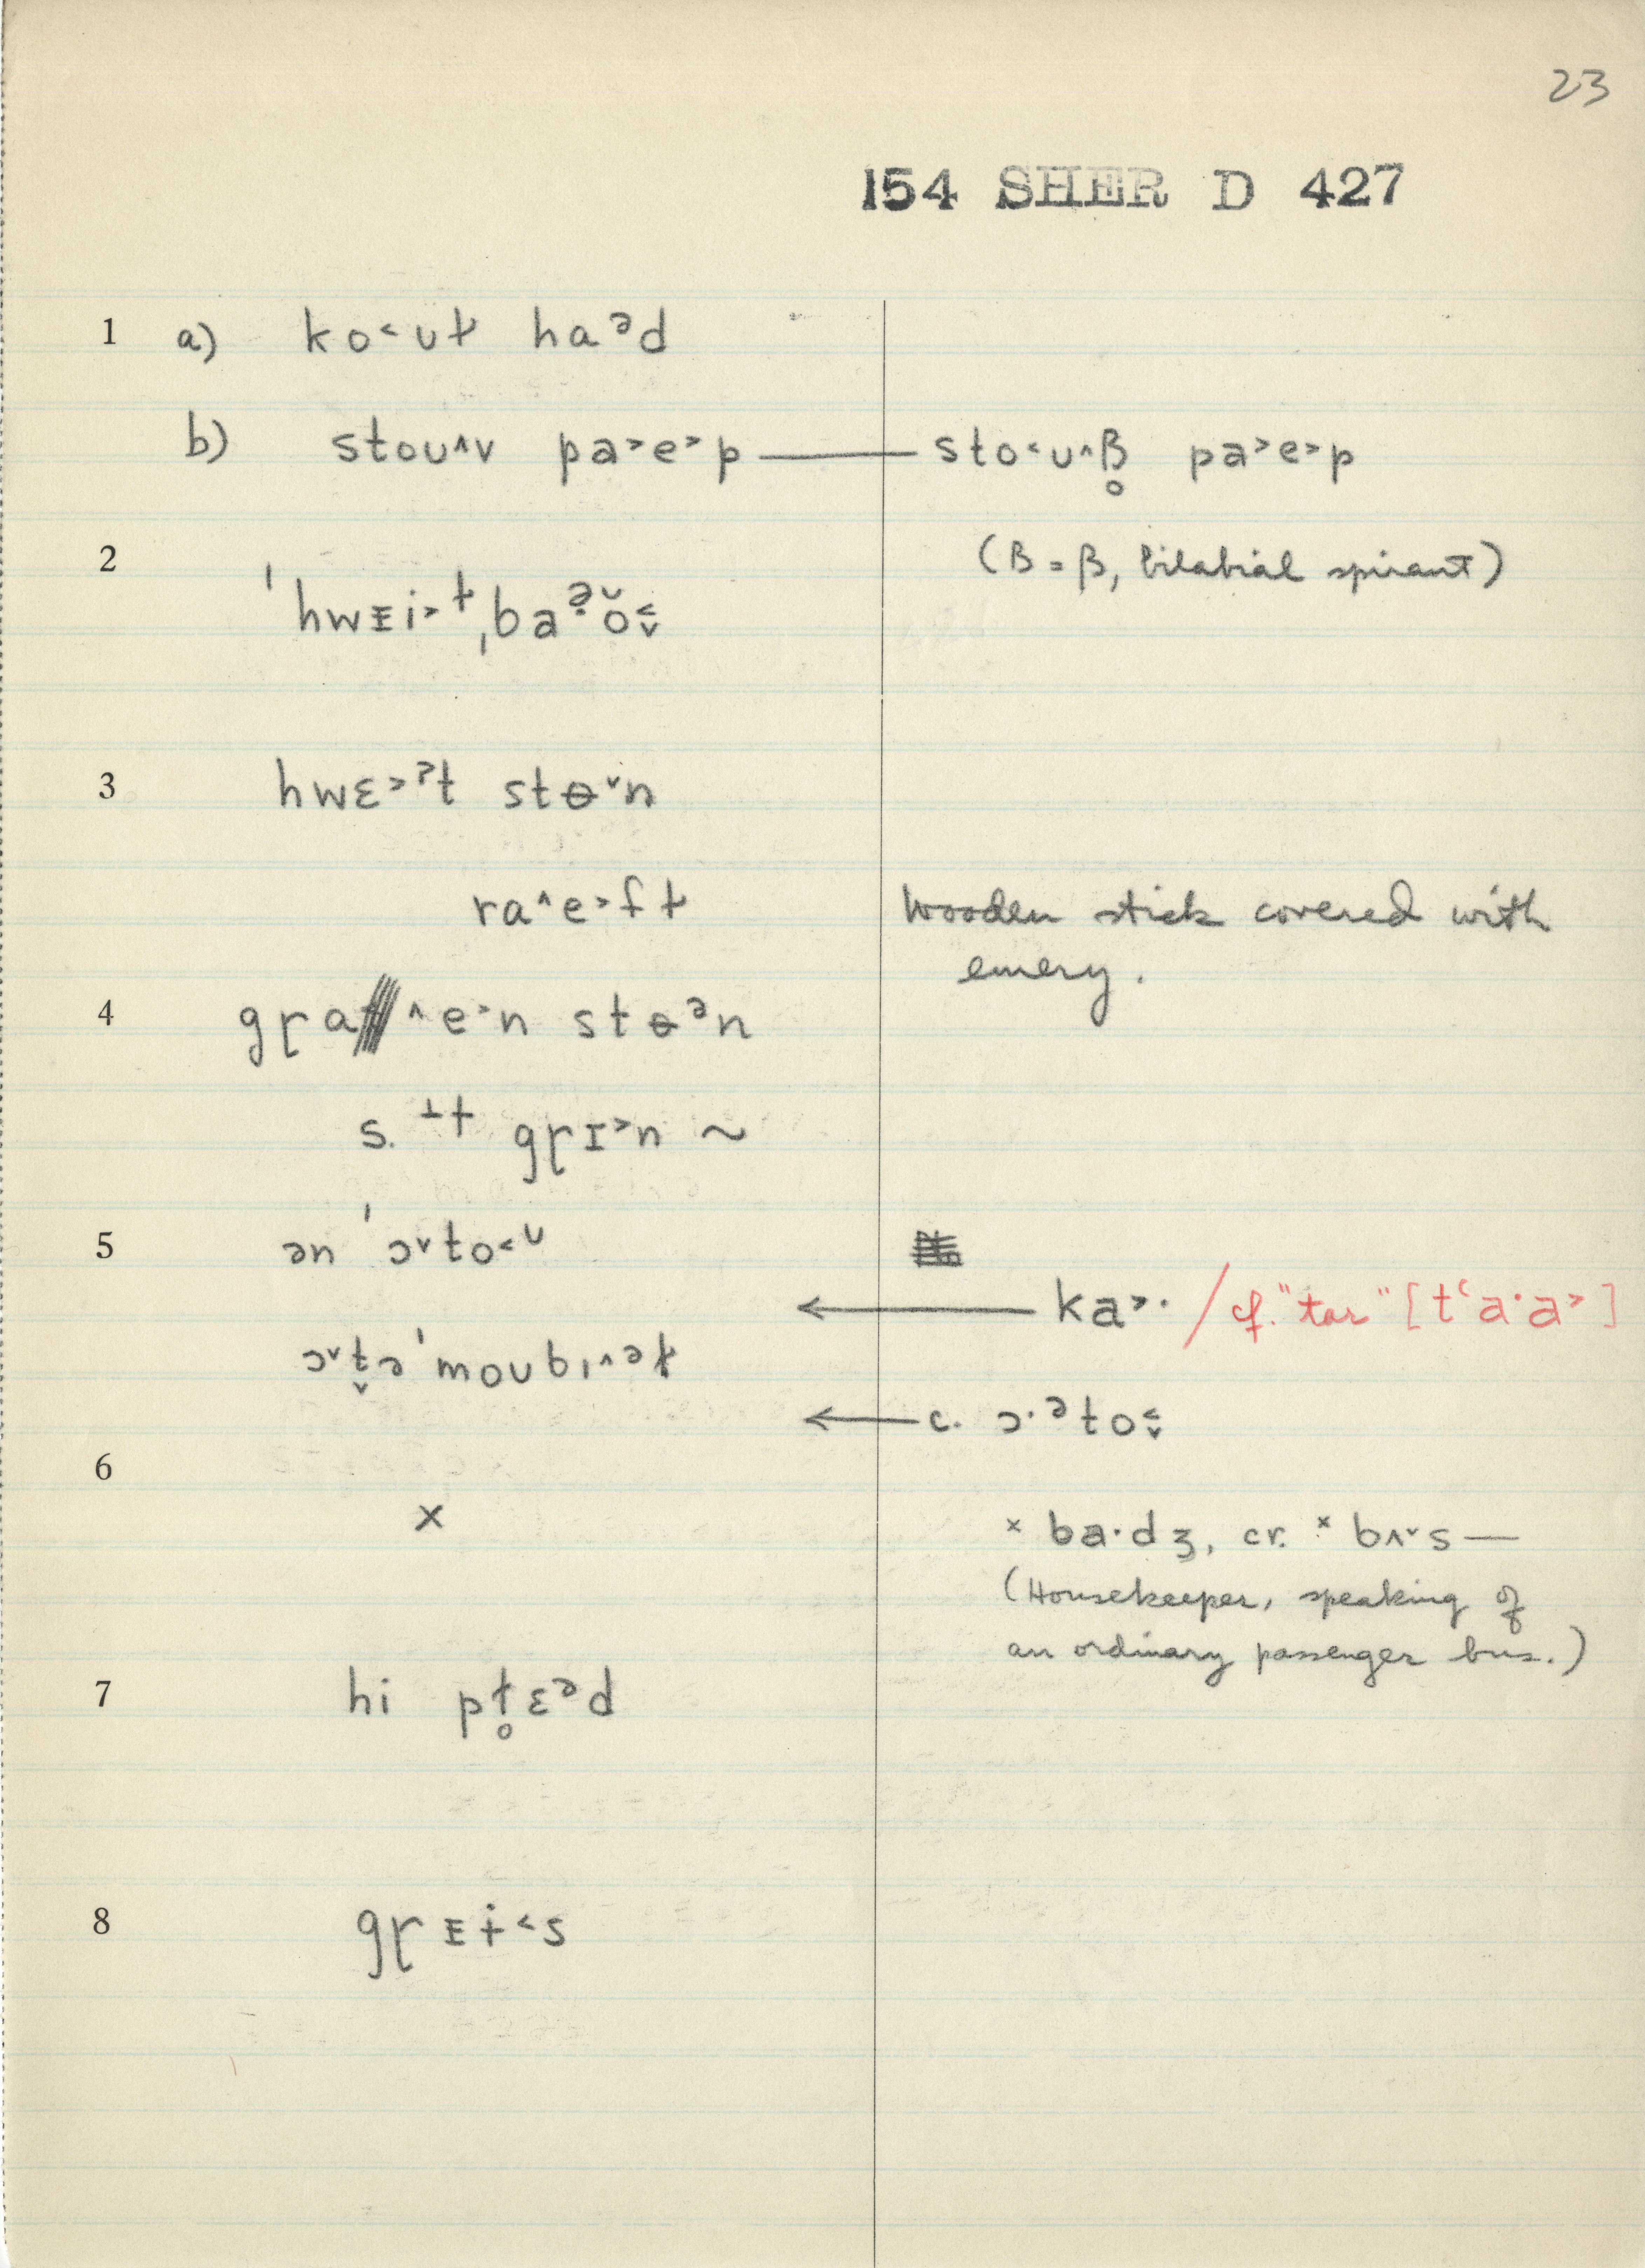 23
154 SHER D 427
1 a) ko˂ uɫ haᵊd
b) stou˄v pa˃e˃p — sto˂u˄β̥ pa˃e˃p
2 (B = β, bilabial spirant)
ˈhwᴇi˃ɫˌba
3 hwɛ˃ˀt stɵ˅n
ra˄e˃fɫ wooden stick covered with
emery.
4 gɽa˄e˃n stɵᵊn
s. ⊥† gɽɪ˃n ~
5 ən ˈɔ˅to˂ᵁ
← ka˃· / cf. "tar" [tʻa·a˃]
ɔ˅t̬əˈmoubɪ˄əɫ
← c. ɔ·ᵊto
6
x × ba·dʒ, cr. × bʌ˅s —
(Housekeeper, speaking of
an ordinary passenger bus.)
7 hi pɫ̥ɛᵊd
8 gɽᴇɨ˂s